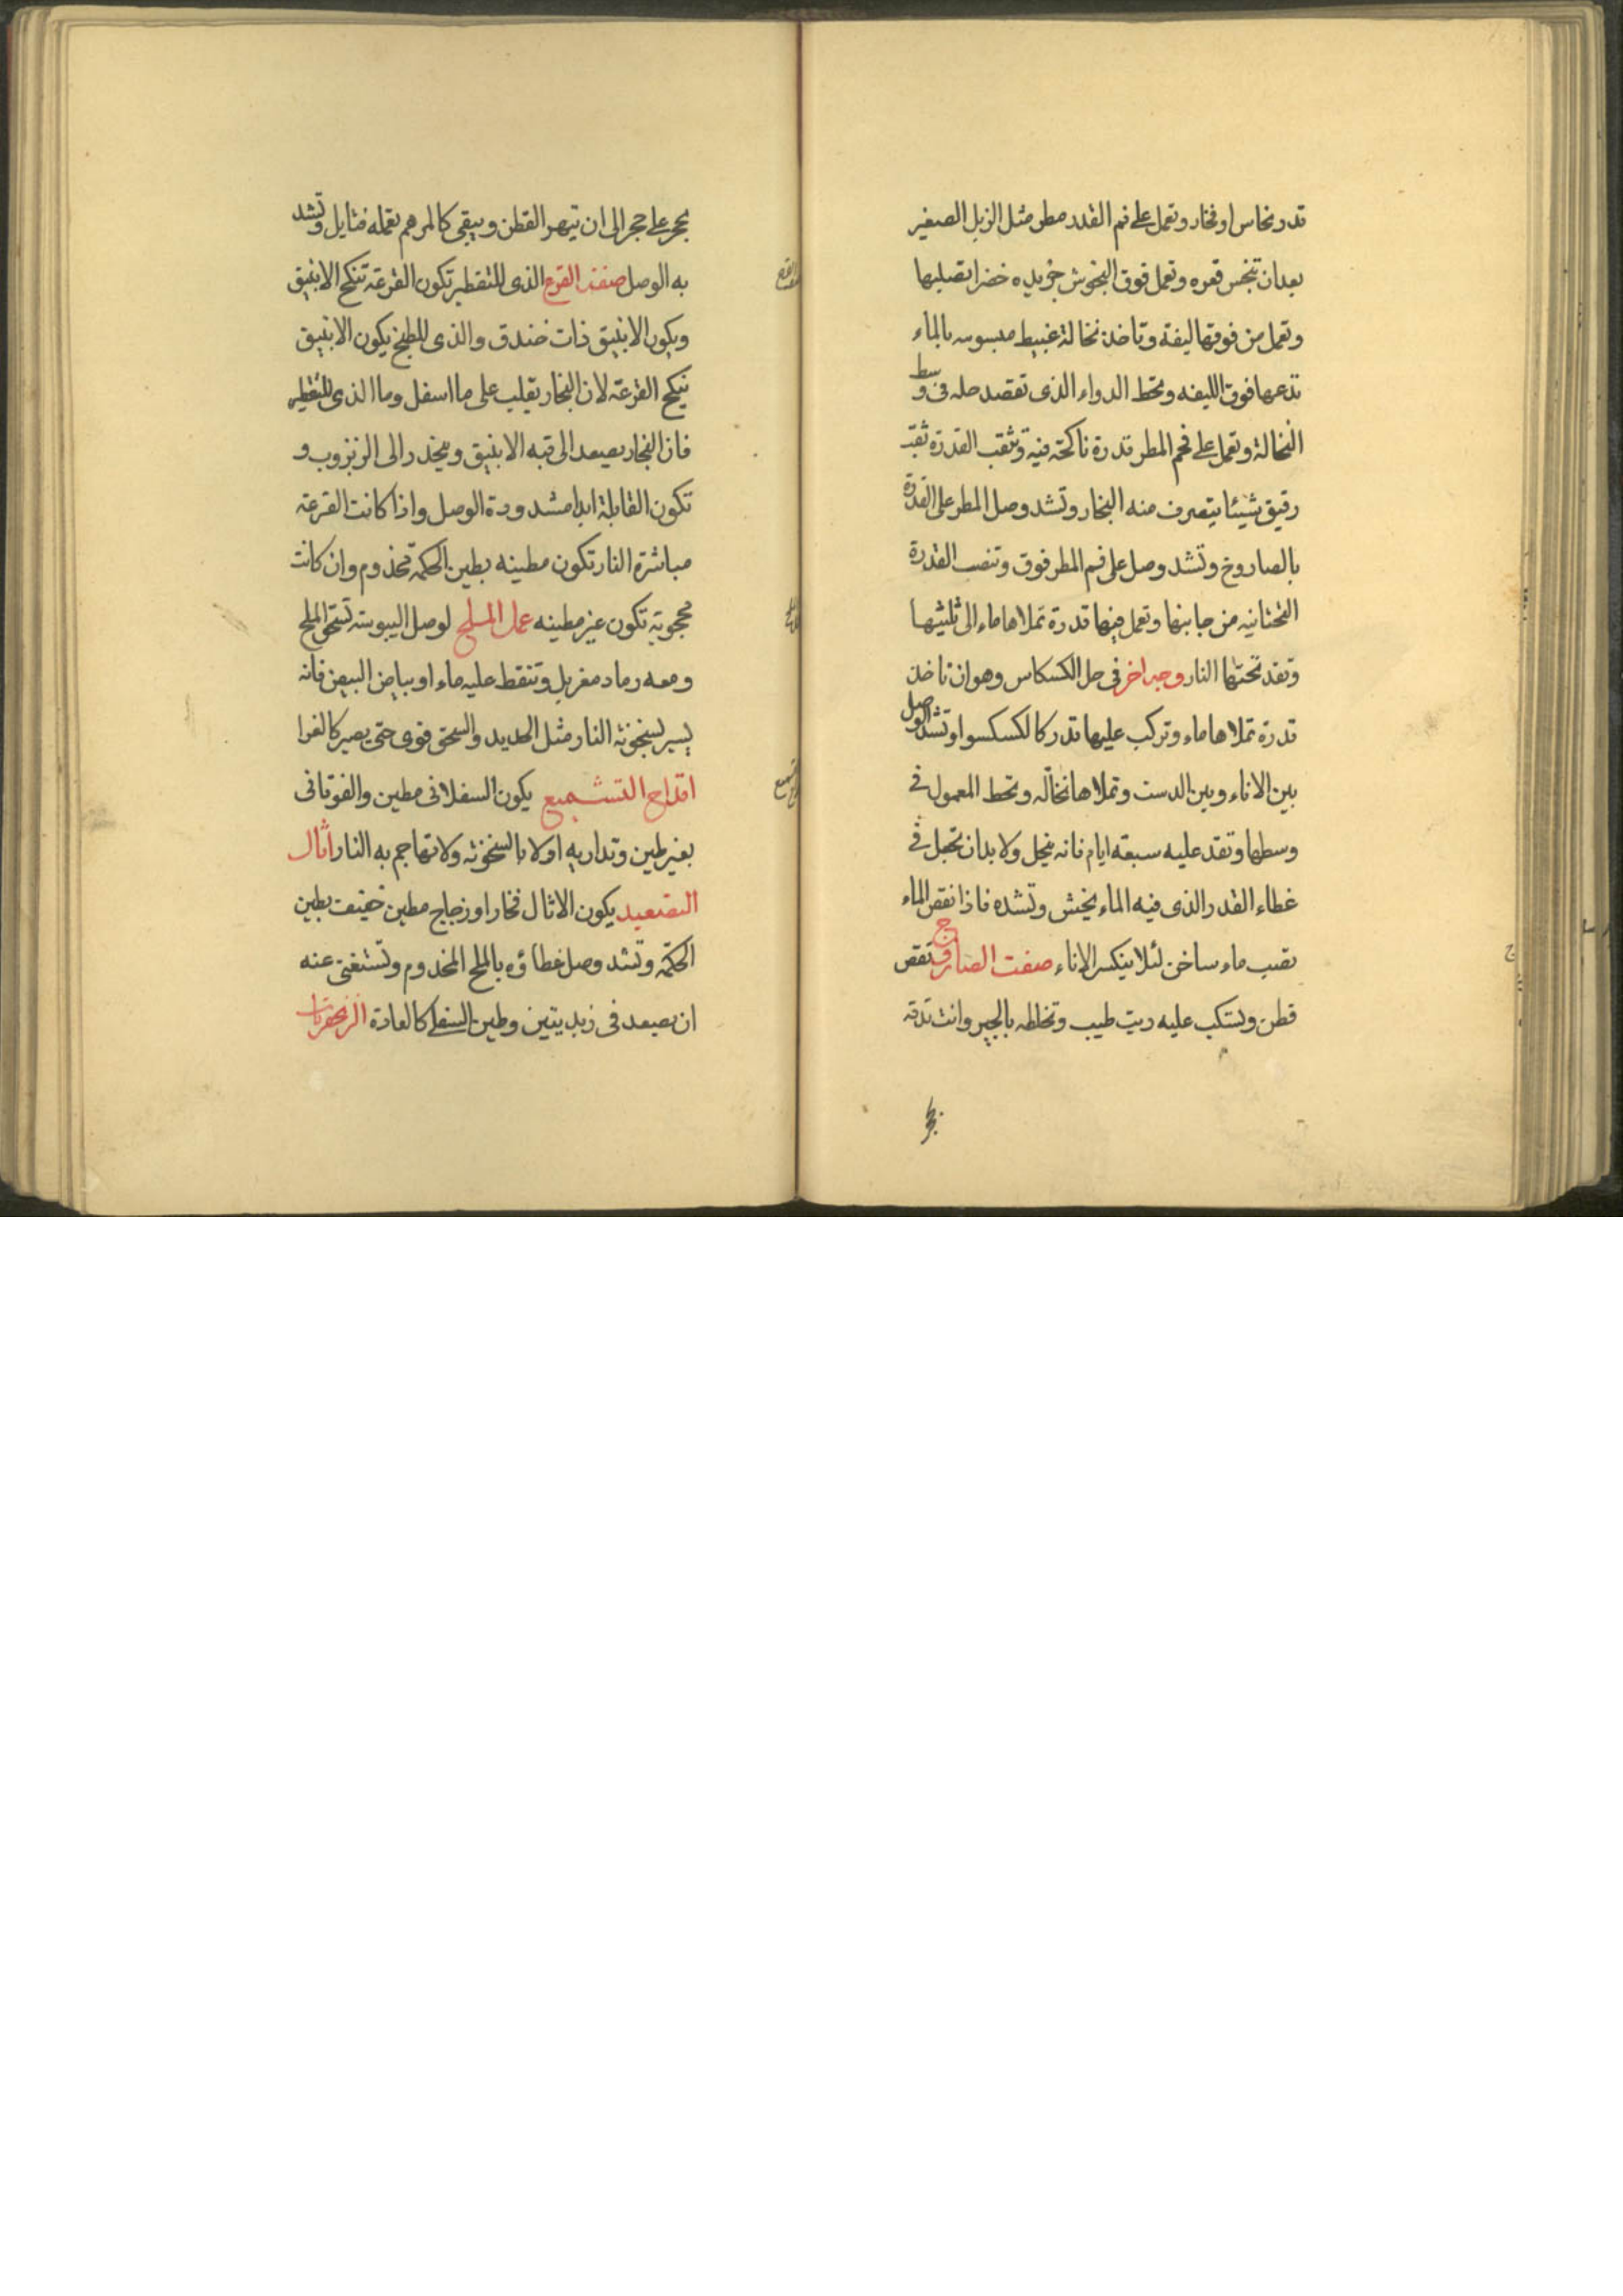 قدر نحاس او فخار وتعمل على فم القدر مطر مثل الزبل الصغير
بعد ان تنجس قعره وتعمل فوق البخوش جريده خضرا تصلبها
وتعمل من فوقها ليفة وتاخذ نخالة غبيط مبسوسه بالماء
تدعها فوق الليفه وتحط الدواء الذى تقصد حله فى وسط
النخالة وتعمل على فم المطر قدرة ناكحته فيه وتثقب القدرة ثقب
رقيق شيئا يتصرف منه البخار وتشد وصل المطر على القدرة
بالصاروخ وتشد وصل على فم المطر فوق وتنصب القدرة
التحتانيه من جانبها وتعمل فيها قدرة تملاها ماء الى ثلثيها
وتقد تحتها النار وجه اخر فى حل الكسكاس وهو ان تاخذ
قدرة تملاها ماء وتركب عليها قدر كالكسكسوا وتشد الوصل
بين الاناء وبين الدست وتملاها نخاله وتحط المعمول فى
وسطها وتقد عليه سبعة ايام فانه ينحل ولا بد ان تجعل فى
غطاء القدر الذى فيه الماء بخش وتشده فاذا نقص الماء
تصب ماء ساخن لئلا ينكسر الاناء صفت الصاروج تقص
قطن وتسكب عليه زيت طيب وتخلطه بالجير وانت تدقه
بحجر
بحجر على حجر الى ان يتهر القطن ويبقى كالمرهم تعمله فتايل وتشد
به الوصل صفة القرع الذى للتقطير تكون القرعة تنكح الانبيق
ويكون الانبيق ذات خندق والذى للطبخ يكون الانبيق
ينكح القرعة لان البخار يقلب على ما اسفل وما الذى للتقطير
فان البخار يصعد الى قبه الانبيق وينحدر الى الزنزوب و
تكون القابلة ابدا مشدودة الوصل واذا كانت القرعة
مباشرة النار تكون مطينه بطين الحكمة مخدوم وان كانت
محجوبة تكون غير مطينه عمل الملح لوصل اليبوسة تسحق الملح
ومعه رماد مغربل وتنقط عليه ماء او بياض البيض فانه
يسير لسخونة النار مثل الحديد والسحق قوى حتى يصير كالغرا
اقداح التشميع يكون السفلانى مطين والفوقانى
بغير طين وتداريه اولا بالسخونة ولا تهاجم به النار اثال
التصعيد يكون الاثال فخار او زجاج مطين خفيف بطين
الحكمة وتشد وصل غطاؤه بالملح المخدوم وتستغنى عنه
ان يصعد فى زبديتين وطين السفلى كالعادة الزنجفريات